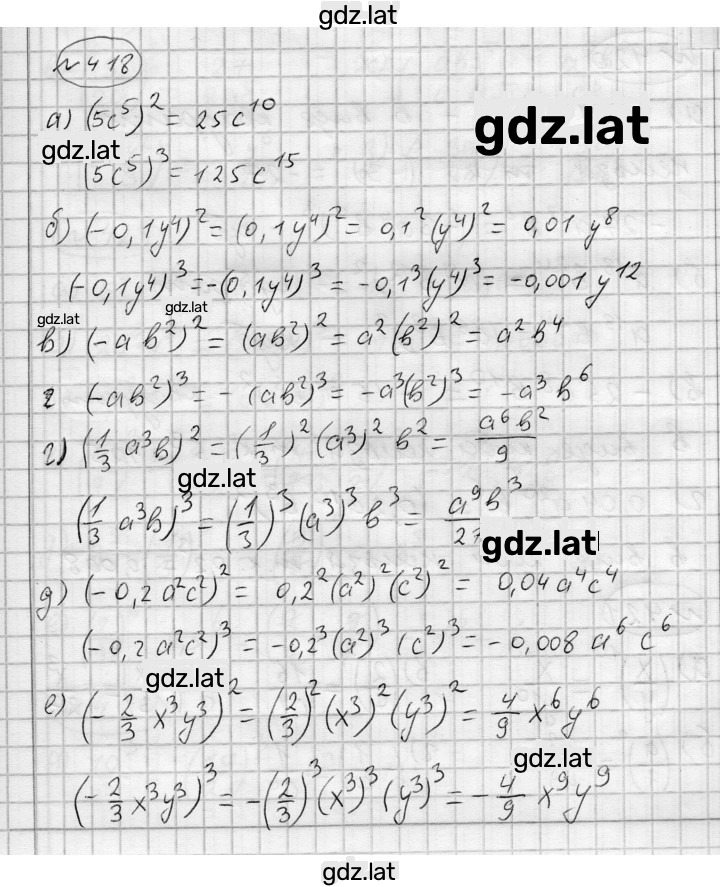 gdz.lat
№ 418
а) (5c⁵)² = 25c¹⁰
gdz.lat
gdz.lat
(5c⁵)³ = 125c¹⁵
б) (-0,1y⁴)² = (0,1y⁴)² = 0,1²(y⁴)² = 0,01 y⁸
(-0,1y⁴)³ = -(0,1y⁴)³ = -0,1³(y⁴)³ = -0,001 y¹²
gdz.lat
gdz.lat
в) (-ab²)² = (ab²)² = a²(b²)² = a²b⁴
(-ab²)³ = -(ab²)³ = -a³(b²)³ = -a³b⁶
г) (1/3 a³b)² = (1/3)²(a³)² b² = a⁶b²/9
gdz.lat
(1/3 a³b)³ = (1/3)³(a³)³ b³ = a⁹b³/27
gdz.lat
д) (-0,2a²c²)² = 0,2²(a²)²(c²)² = 0,04a⁴c⁴
(-0,2a²c²)³ = -0,2³(a²)³(c²)³ = -0,008 a⁶c⁶
gdz.lat
е) (-2/3 x³y³)² = (2/3)²(x³)²(y³)² = 4/9 x⁶y⁶
gdz.lat
(-2/3 x³y³)³ = -(2/3)³(x³)³(y³)³ = -4/9 x⁹y⁹
gdz.lat